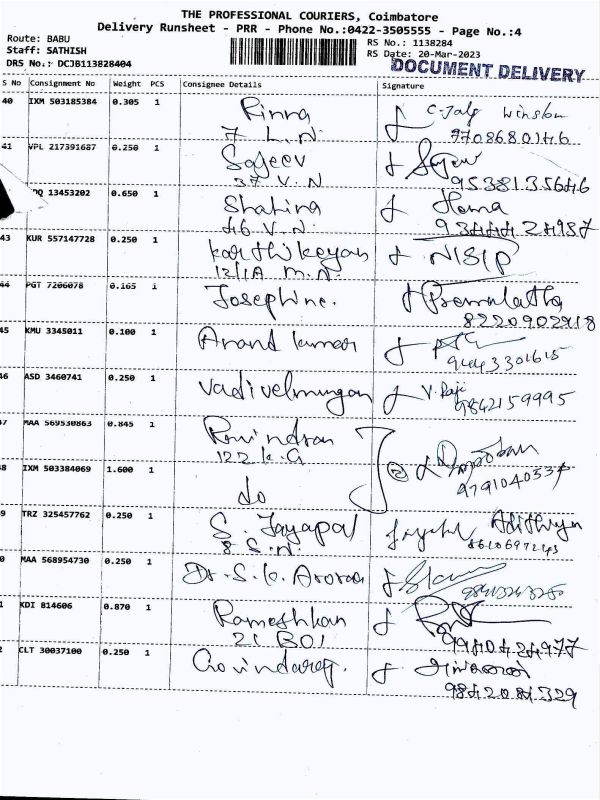 THE PROFESSIONAL COURIERS, Coimbatore
Delivery Runsheet - PRR - Phone No.:0422-3505555 - Page No.:4
Route: BABU
Staff: SATHISH
DRS No.: DCJB113828404
RS No.: 1138284
RS Date: 20-Mar-2023
DOCUMENT DELIVERY
S No Consignment No Weight PCS Consignee Details Signature
40 IXM 503185384 0.305 1 Rinna C-Jalf Winston
7 L.N. 9708680146
41 VPL 217391687 0.250 1 Sajeev
37 V.N 9538135646
13453202 0.650 1 Shahina Hema
46 V.N. 9344424987
43 KUR 557147728 0.250 1 Karthikeyan
12/1A M.N.
44 PGT 7206078 0.165 1 Josephine. Premalatha
8220902918
45 KMU 3345011 0.100 1 Anand kumar
9443301615
46 ASD 3460741 0.250 1 Vadivelmurugan V. Raji
9842159995
47 MAA 569530863 0.845 1 Ravindran
122 K.G 9791040537
8 IXM 503384069 1.600 1 do
9 TRZ 325457762 0.250 1 S. Jayapal Adithyan
8 S.N.
0 MAA 568954730 0.250 1 Dr. S.K. Arora
1 KDI 814606 0.870 1 Rameshkan
21 B01
2 CLT 30037100 0.250 1 Govindaraj.
9842081329